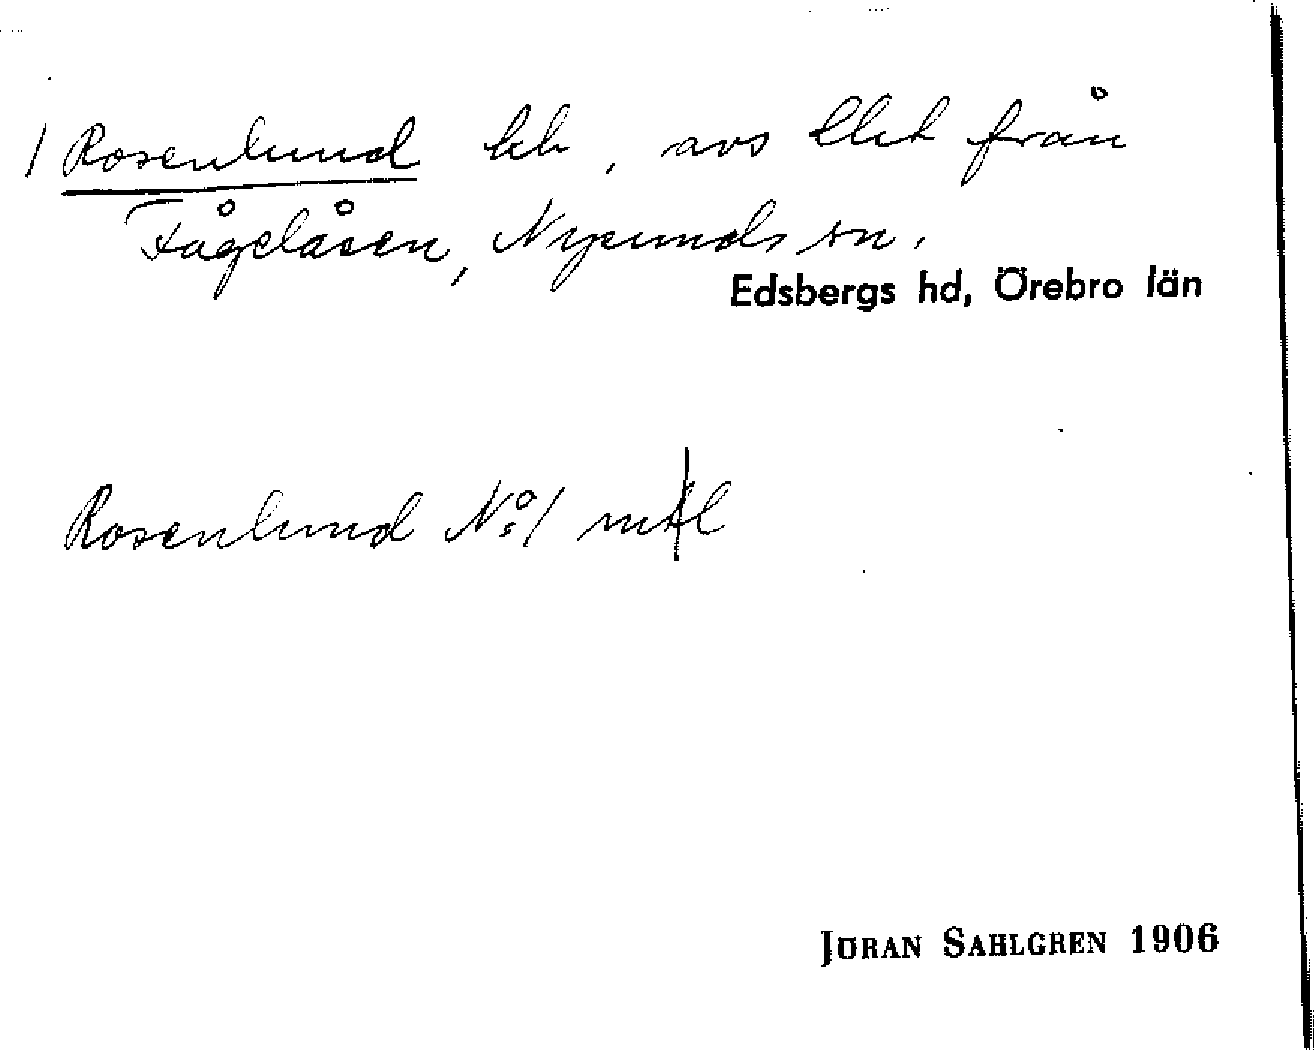 / Rosenlund lh, avs lht från
Fågelåsen, Nysunds sn,
Edsbergs hd, Örebro län
Rosenlund No 1 mtl
JÖRAN SAHLGREN 1906